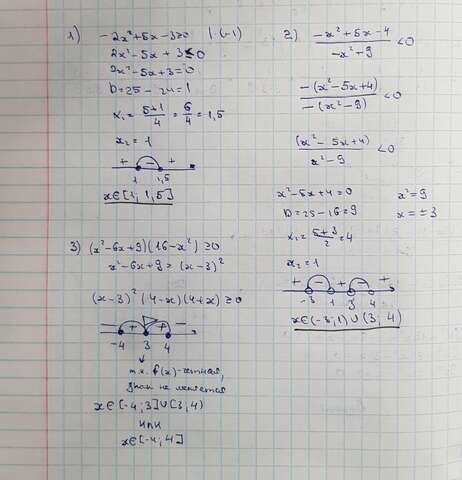 1) -2x²+5x-3≥0 | ·(-1)
2x²-5x+3≤0
2x²-5x+3=0
D=25-24=1
x₁=(5+1)/4=6/4=1,5
x₂=1
+ - +
1 1,5
x∈[1; 1,5]
2) (-x²+5x-4)/(-x²+9)<0
(-(x²-5x+4))/(-(x²-9))<0
(x²-5x+4)/(x²-9)<0
x²-5x+4=0 x²=9
D=25-16=9 x=±3
x₁=(5+3)/2=4
x₂=1
+ - + - +
-3 1 3 4
x∈(-3;1)∪(3;4)
3) (x²-6x+9)(16-x²)≥0
x²-6x+9=(x-3)²
(x-3)²(4-x)(4+x)≥0
- + + -
-4 3 4
т.к. f(x)-четная,
знак не меняется
x∈[-4;3]∪(3;4)
или
x∈[-4;4]